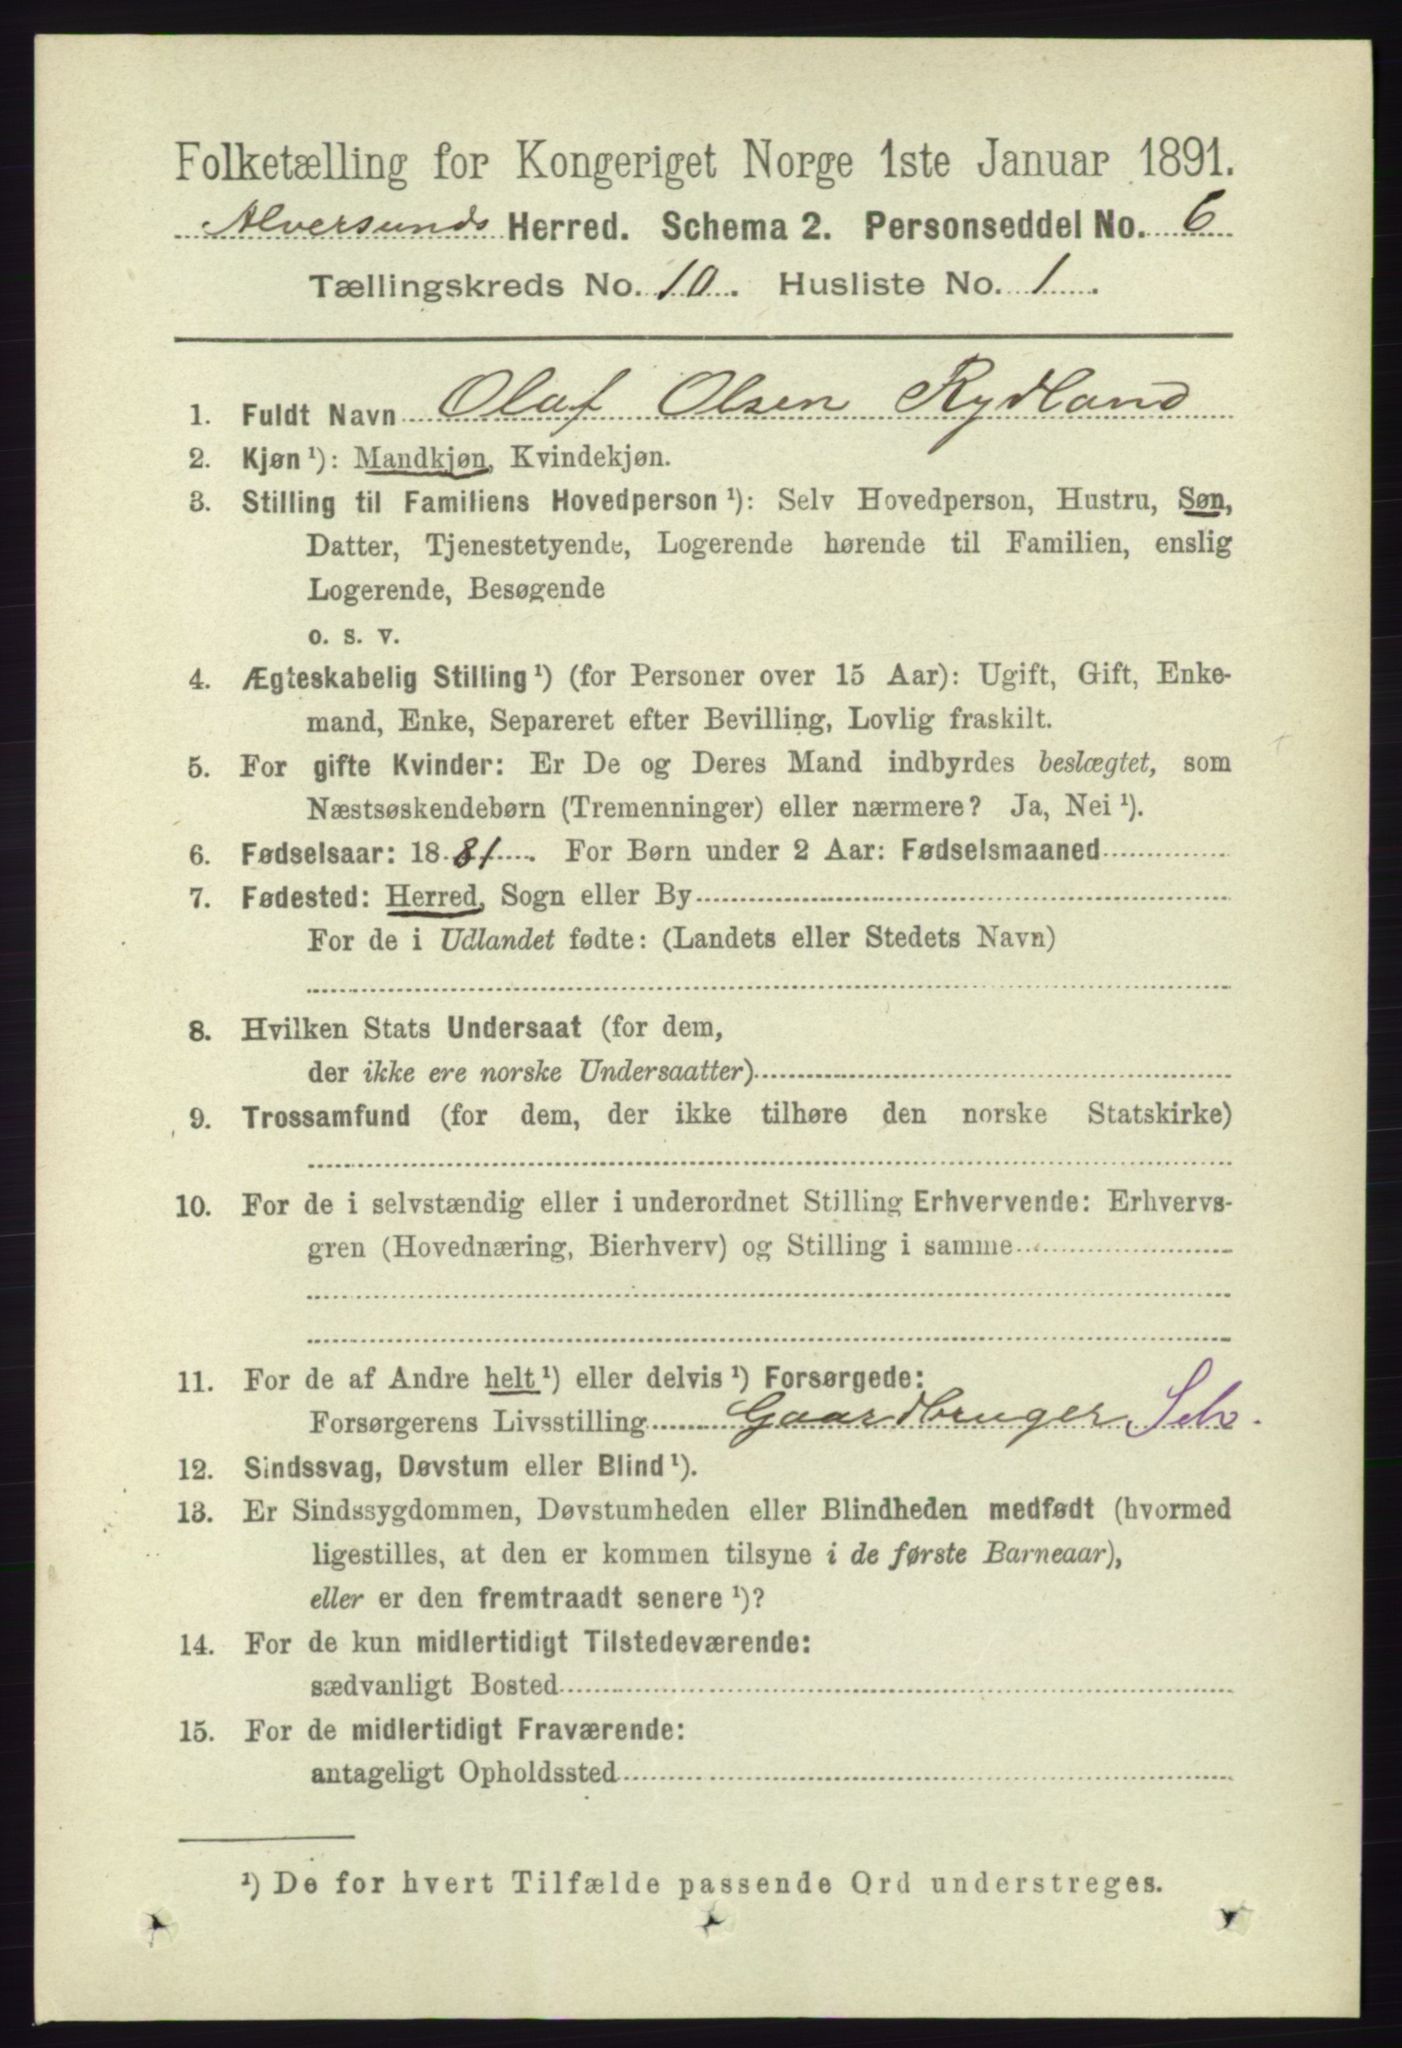 Folketælling for Kongeriget Norge 1ste Januar 1891.
Alversunds Herred. Schema 2. Personseddel No. 6
Tællingskreds No. 10. Husliste No. 1.
1. Fuldt Navn Olaf Olsen Rydland
2. Kjøn ¹): Mandkjøn, Kvindekjøn.
3. Stilling til Familiens Hovedperson ¹): Selv Hovedperson, Hustru, Søn,
Datter, Tjenestetyende, Logerende hørende til Familien, enslig
Logerende, Besøgende
o. s. v.
4. Ægteskabelig Stilling ¹) (for Personer over 15 Aar): Ugift, Gift, Enke-
mand, Enke, Separeret efter Bevilling, Lovlig fraskilt.
5. For gifte Kvinder: Er De og Deres Mand indbyrdes beslægtet, som
Næstsøskendebørn (Tremenninger) eller nærmere? Ja, Nei ¹).
6. Fødselsaar: 1881. For Børn under 2 Aar: Fødselsmaaned
7. Fødested: Herred, Sogn eller By
For de i Udlandet fødte: (Landets eller Stedets Navn)
8. Hvilken Stats Undersaat (for dem,
der ikke ere norske Undersaatter)
9. Trossamfund (for dem, der ikke tilhøre den norske Statskirke)
10. For de i selvstændig eller i underordnet Stilling Erhvervende: Erhvervs-
gren (Hovednæring, Bierhverv) og Stilling i samme
11. For de af Andre helt ¹) eller delvis ¹) Forsørgede:
Forsørgerens Livsstilling Gaardbruger Selv.
12. Sindssvag, Døvstum eller Blind ¹).
13. Er Sindssygdommen, Døvstumheden eller Blindheden medfødt (hvormed
ligestilles, at den er kommen tilsyne i de første Barneaar),
eller er den fremtraadt senere ¹)?
14. For de kun midlertidigt Tilstedeværende:
sædvanligt Bosted
15. For de midlertidigt Fraværende:
antageligt Opholdssted
¹) De for hvert Tilfælde passende Ord understreges.